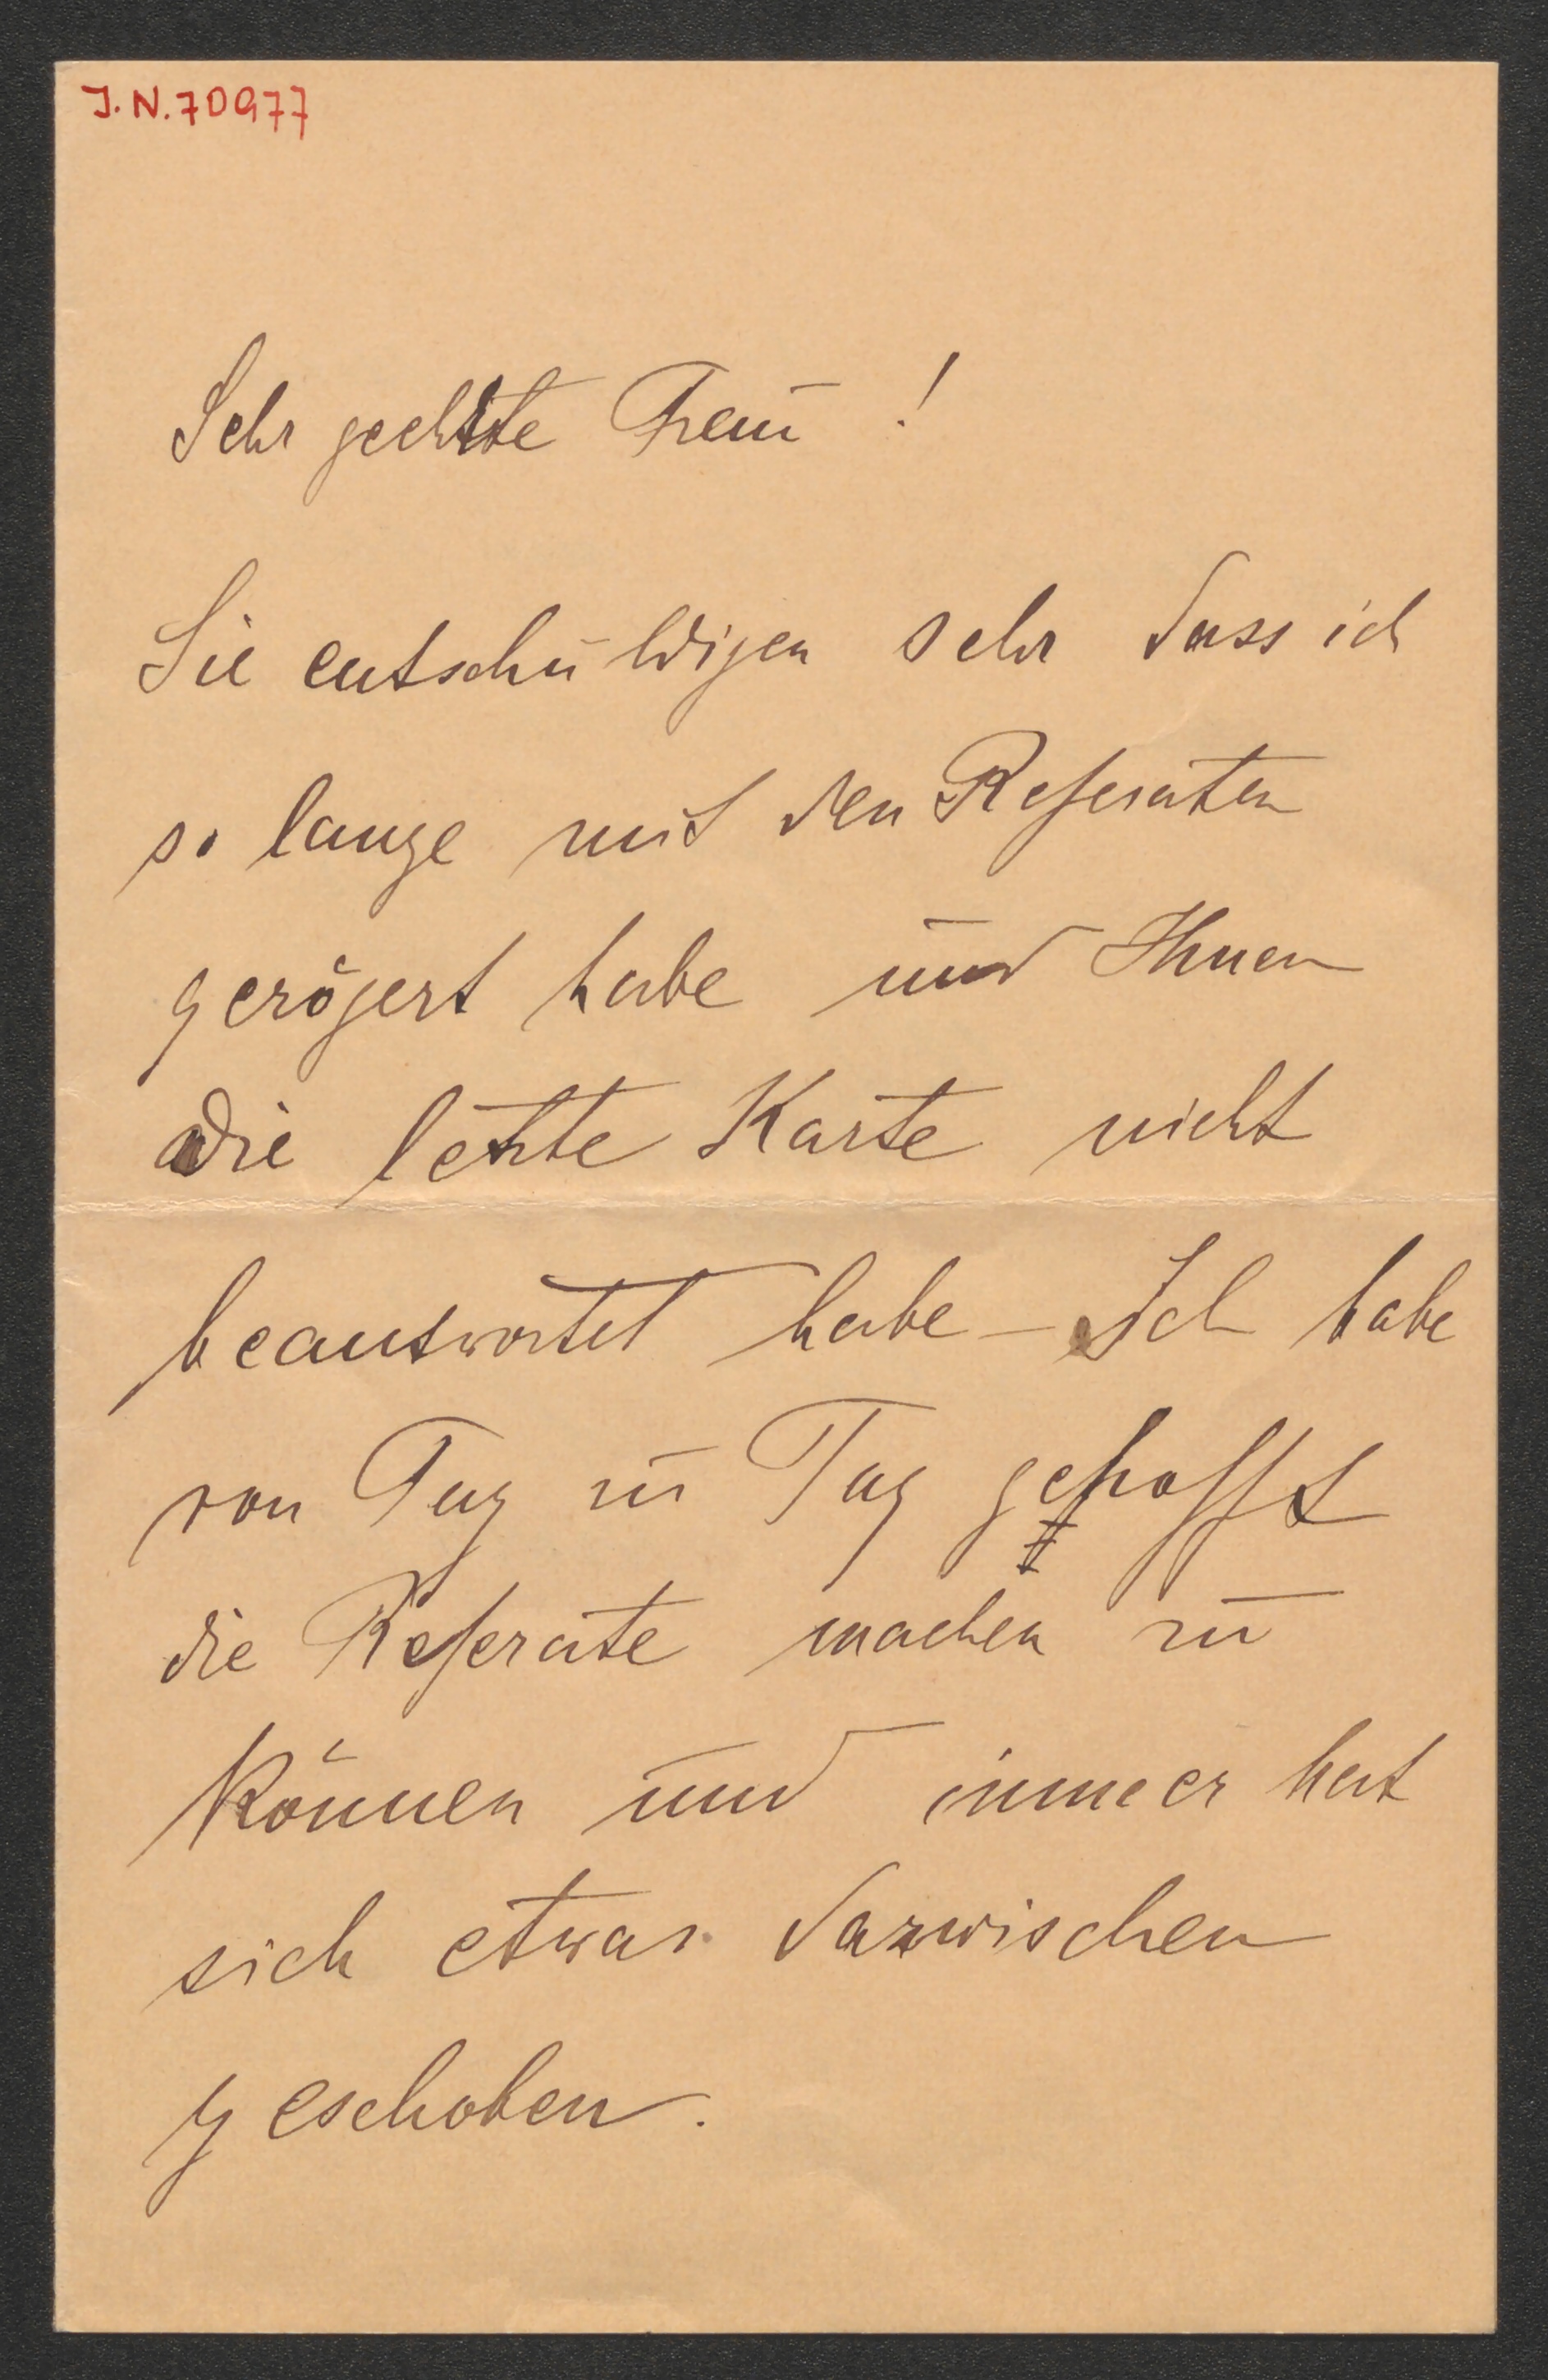 J.N. 70977
Sehr geehrte Frau !
Sie entschuldigen sehr dass ich
so lange mit den Referaten
gezögert habe und Ihnen
die letzte Karte nicht
beantwortet habe – Ich habe
von Tag zu Tag gehofft
die Referate machen zu
können und immer hat
sich etwas dazwischen
geschoben.